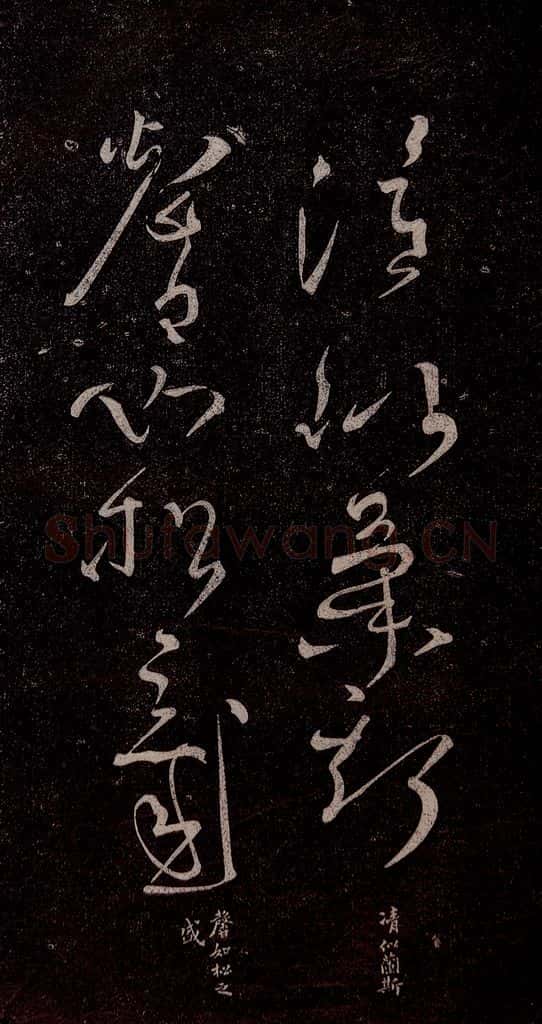 凊似蘭斯
馨如松之盛
凊似蘭斯
馨如松之
盛
Shufawang.CN